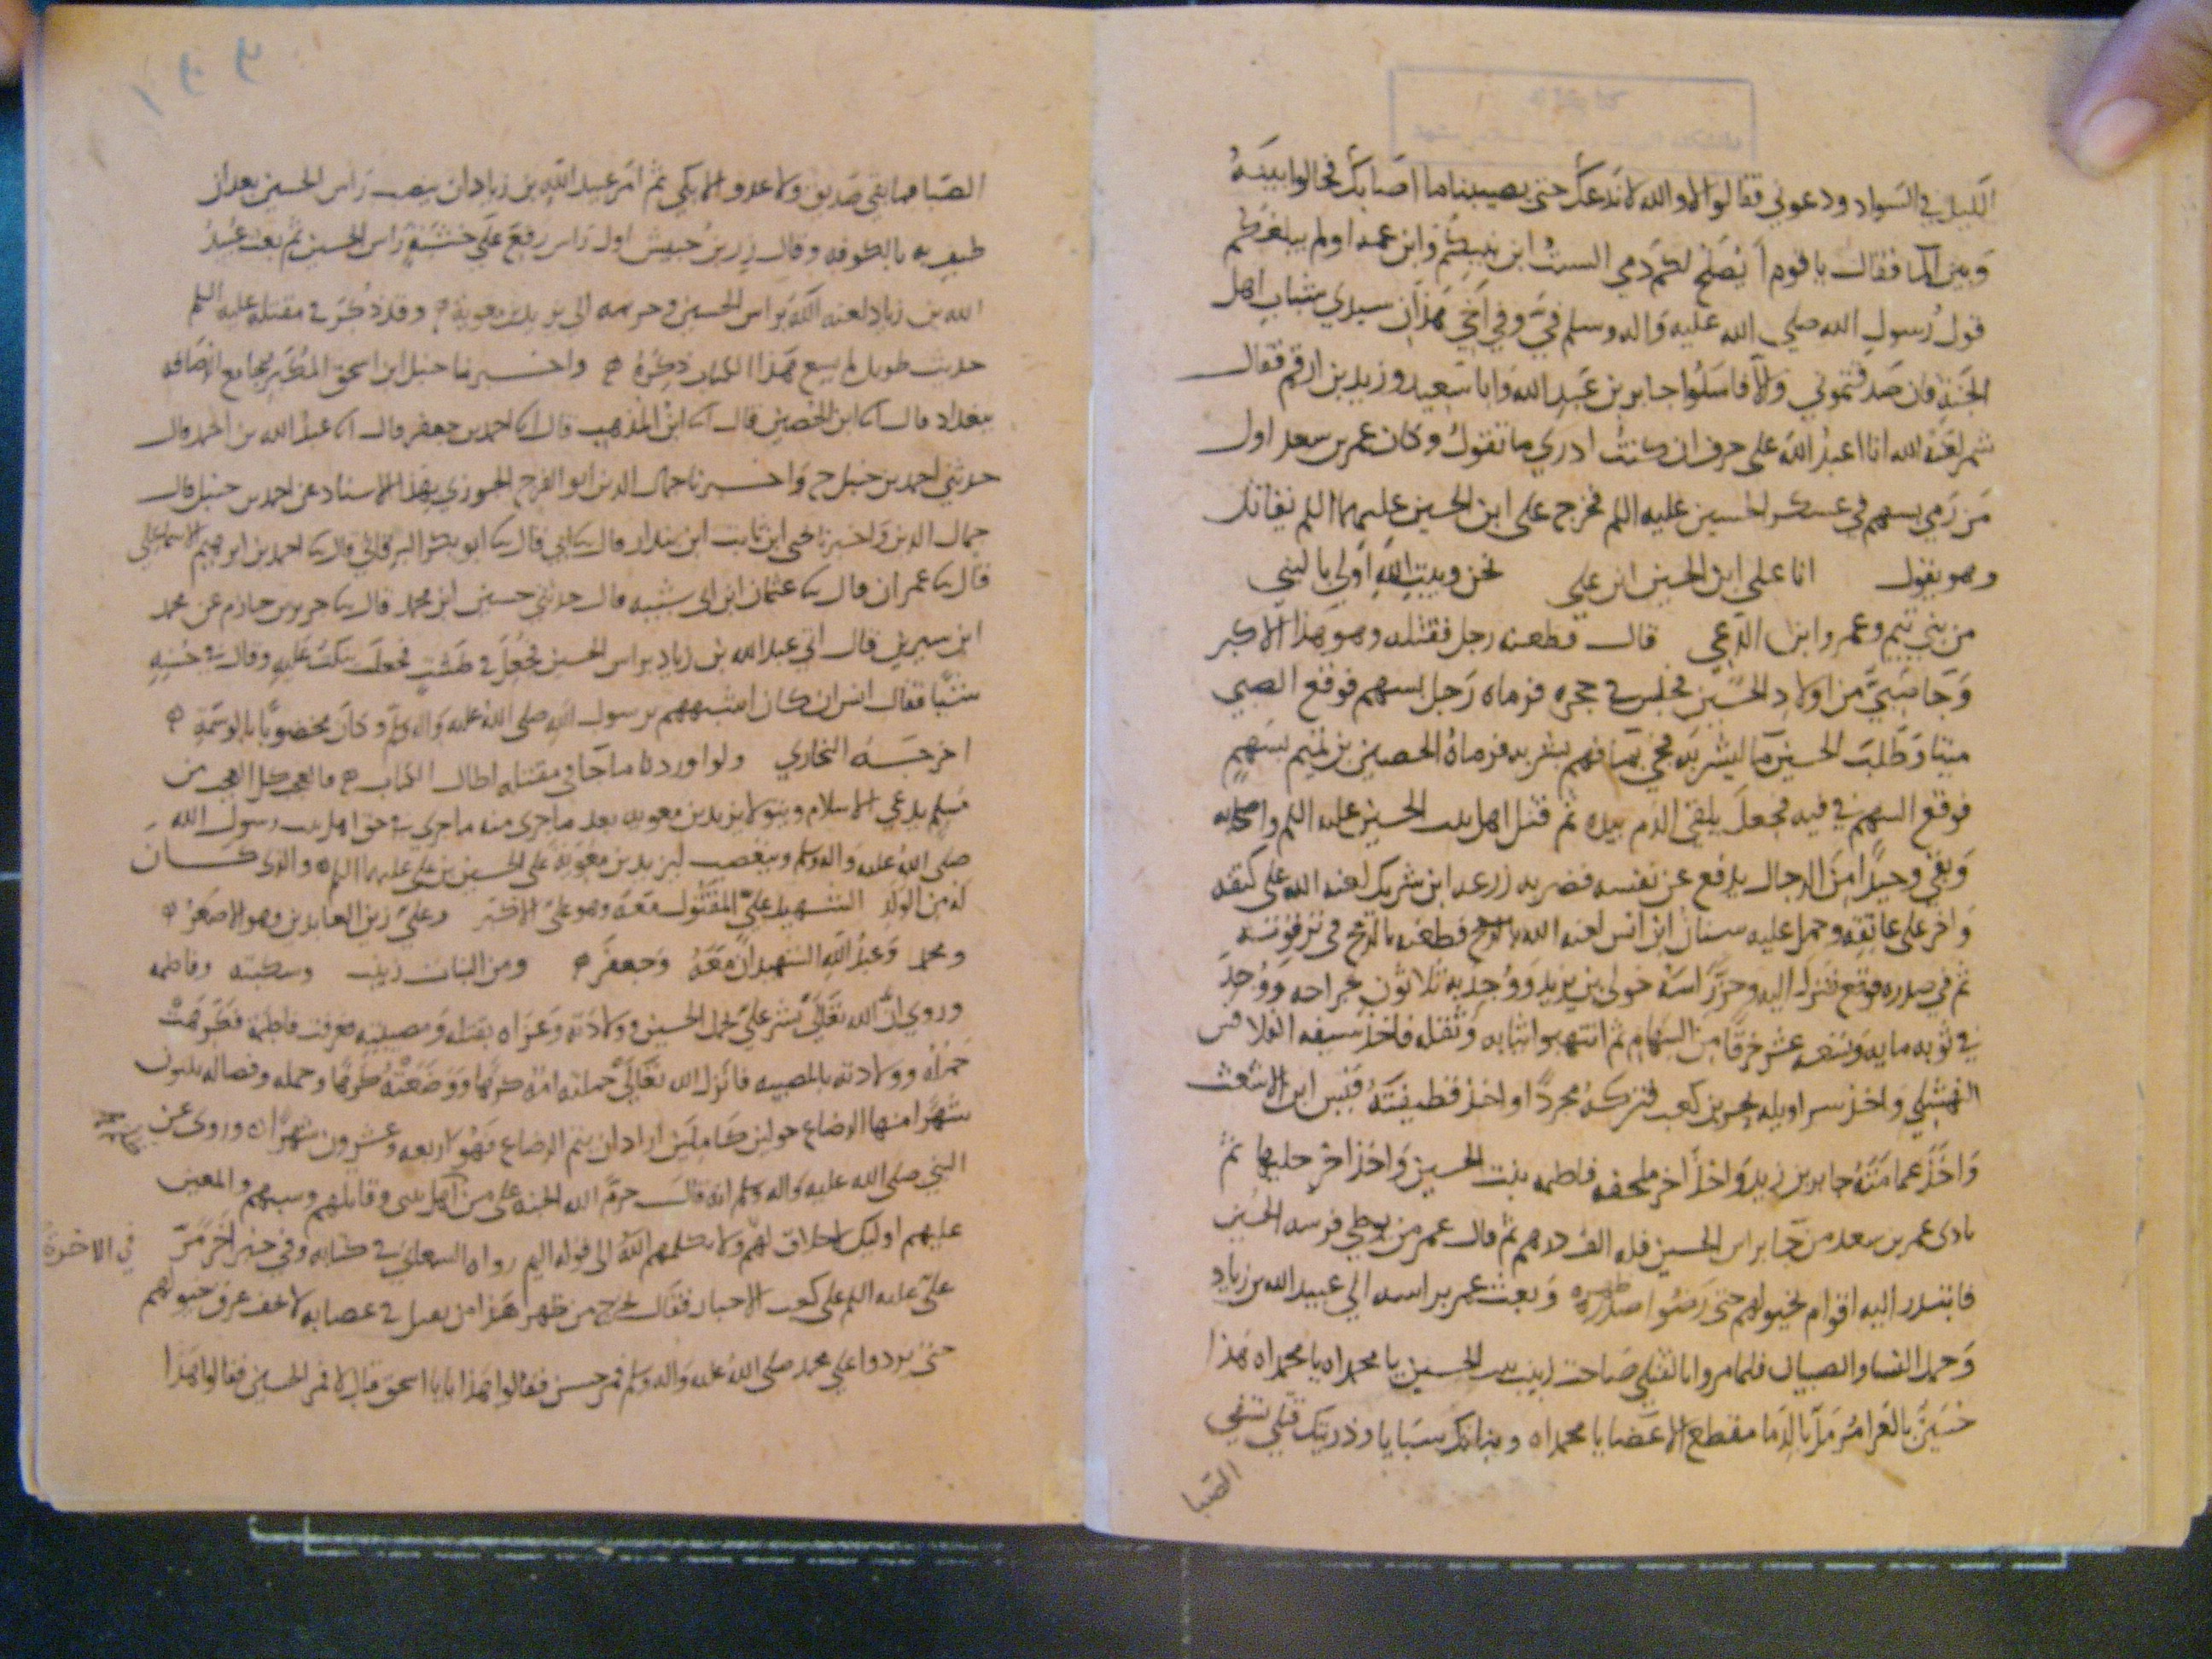 الليل في السواد ودعوني فقالوا لا والله لا ندعك حتى يصيبنا ما اصابك فحالوا بينه
وبين الما فقال يا قوم ايصلح لكم دمي الست ابن نبيكم وابن عمه اولم يبلغكم
قول رسول الله صلى الله عليه واله وسلم في وفي اخي هذان سيدي شباب اهل
الجنة فان صدقتموني والا فاسلوا جابر بن عبد الله وابا سعيد وزيد بن ارقم فقال
شمر لعنه الله انا اعبد الله على حرف ان كنت ادري ما تقول وكان عمر بن سعد اول
من رمى بسهم في عسكر الحسين عليه السلم فخرج علي ابن الحسين عليهما السلم يقاتل
وهو يقول انا علي ابن الحسين ابن علي نحن وبيت الله اولى بالنبي
من بني تيم وعمر وابن الدعي قال فطعنه رجل فقتله وهو هذا الاكبر
وجا صبي من اولاد الحسين فجلس في حجره فرماه رجل بسهم فوقع الصبي
ميتا وطلب الحسين ما ليشربه فجي بما فهم بشربه فرماه الحصين بن تميم بسهم
فوقع السهم في فيه فجعل يلقى الدم بيده ثم قتل اهل بيت الحسين عليه السلم واصحابه
وبقي وحيدا من الرجال يدفع عن نفسه فضربه زرعه ابن شريك لعنه الله على كتفه
واخر على عاتقه وحمل عليه سنان ابن انس لعنه الله بالرمح فطعنه بالرمح في ترقوته
ثم في صدره فوقع فنزل اليه وحز راسه خولى بن يزيد ووجد به ثلاثون جراحه ووجد
في ثوبه مايه وبضعه عشر خرقا من السهام ثم انتهبوا ثيابه وثقله فاخذ سيفه الفلافس
النهشلي واخذ سراويله بحر بن كعب فتركه مجردا واخذ قطيفته قيس ابن الاشعث
واخذ عمامته جابر بن زيد واخذ اخر ملحفه فاطمه بنت الحسين واخذ اخر حليها ثم
نادى عمر بن سعد من جا براس الحسين فله الف درهم ثم قال عمر من يوطي فرسه الحسين
فابتدر اليه اقوام بخيولهم حتى رضوا صدره وظهره وبعث عمر براسه الى عبيد الله بن زياد
وحمل النسا والصبيان فلما مروا بالقتلى صاحت زينب بنت الحسين يا محمداه يا محمداه هذا
حسين بالعرا مزمل بالدما مقطع الاعضا يا محمداه وبناتك سبايا وذريتك قتلى تسفي
الصبا
الصبا فما بقي صديق ولا عدو الا بكى ثم امر عبيد الله بن زياد ان ينصب راس الحسين بعد ان
طيف به بالكوفه وقال زر بن حبيش اول راس رفع على خشبة راس الحسين ثم بعث عبيد
الله بن زياد لعنه الله براس الحسين وحرمه الى يزيد بن معوية وقد ذكر في مقتله عليه السلم
حديث طويل لم يسع هذا الكتاب ذكره واخبرنا حنبل ابن اسحق المكبر بجامع الرصافه
ببغداد قال انا ابن الحصين قال انا ابن المذهب قال انا احمد بن جعفر قال انا عبد الله بن احمد قال
حدثني احمد بن حنبل ح واخبرنا جمال الدين ابو الفرج الجوزي بهذا الاسناد عن احمد بن حنبل قال
جمال الدين واخبرنا يحيى ابن ثابت ابن بندار قال نا ابي قال نا ابو بكر البرقاني قال نا احمد بن ابرهيم الاسماعيلي
قال نا عمران قال نا عثمان ابن ابى شيبه قال حدثني حسين ابن محمد قال نا جرير بن حازم عن محمد
ابن سيرين قال اتي عبد الله بن زياد براس الحسين فجعل في طشت فجعل ينكت عليه وقال في حسنه
شيئا فقال انس ان كان اشبههم برسول الله صلى الله عليه واله وسلم وكان مخضوبا بالوسمة
اخرجه البخاري ولو اوردنا ما جا في مقتله لطال الكتاب فالعجب كل العجب من
مسلم يدعي الاسلام ويتولا يزيد بن معويه بعد ما جرى منه ما جرى في حق اهل بيت رسول الله
صلى الله عليه واله وسلم ويتعصب ليزيد بن معوية على الحسين بن علي عليهما السلم والذى كان
له من الولد الشهيد علي المقتول معه وهو علي الاكبر وعلي زين العابدين وهو الاصغر
ومحمد وعبد الله الشهيدان معه وجعفر ومن البنات زينب وسكينه وفاطمه
وروي ان الله تعالى بشر علي بحمل الحسين وولادته وعزاه بقتله ومصيبته فعرفت فاطمة فكرهت
حمله وولادته بالمصيبه فانزل الله تعالى حملته امه كرها ووضعته كرها وحمله وفصاله ثلثون
شهرا منها الرضاع حولين كاملين لمن اراد ان يتم الرضاع فهو اربعه وعشرون شهرا وروى عن
النبي صلى الله عليه واله وسلم انه قال حرم الله الجنه على من اهل بيتي وقاتلهم وسبهم والمعين
عليهم اوليك لا خلاق لهم في الاخرة ولا يكلمهم الله الى قوله اليم رواه الثعلبي في كتابه وفي خبر اخر مر
علي عليه السلم على كعب الاحبار فقال يخرج من ظهر هذا من يقتل في عصابه لا يجف عرق خيولهم
حتى يردوا على محمد صلى الله عليه واله وسلم فمر حسن فقالوا هذا يا با اسحق قال لا فمر الحسين فقالوا هذا